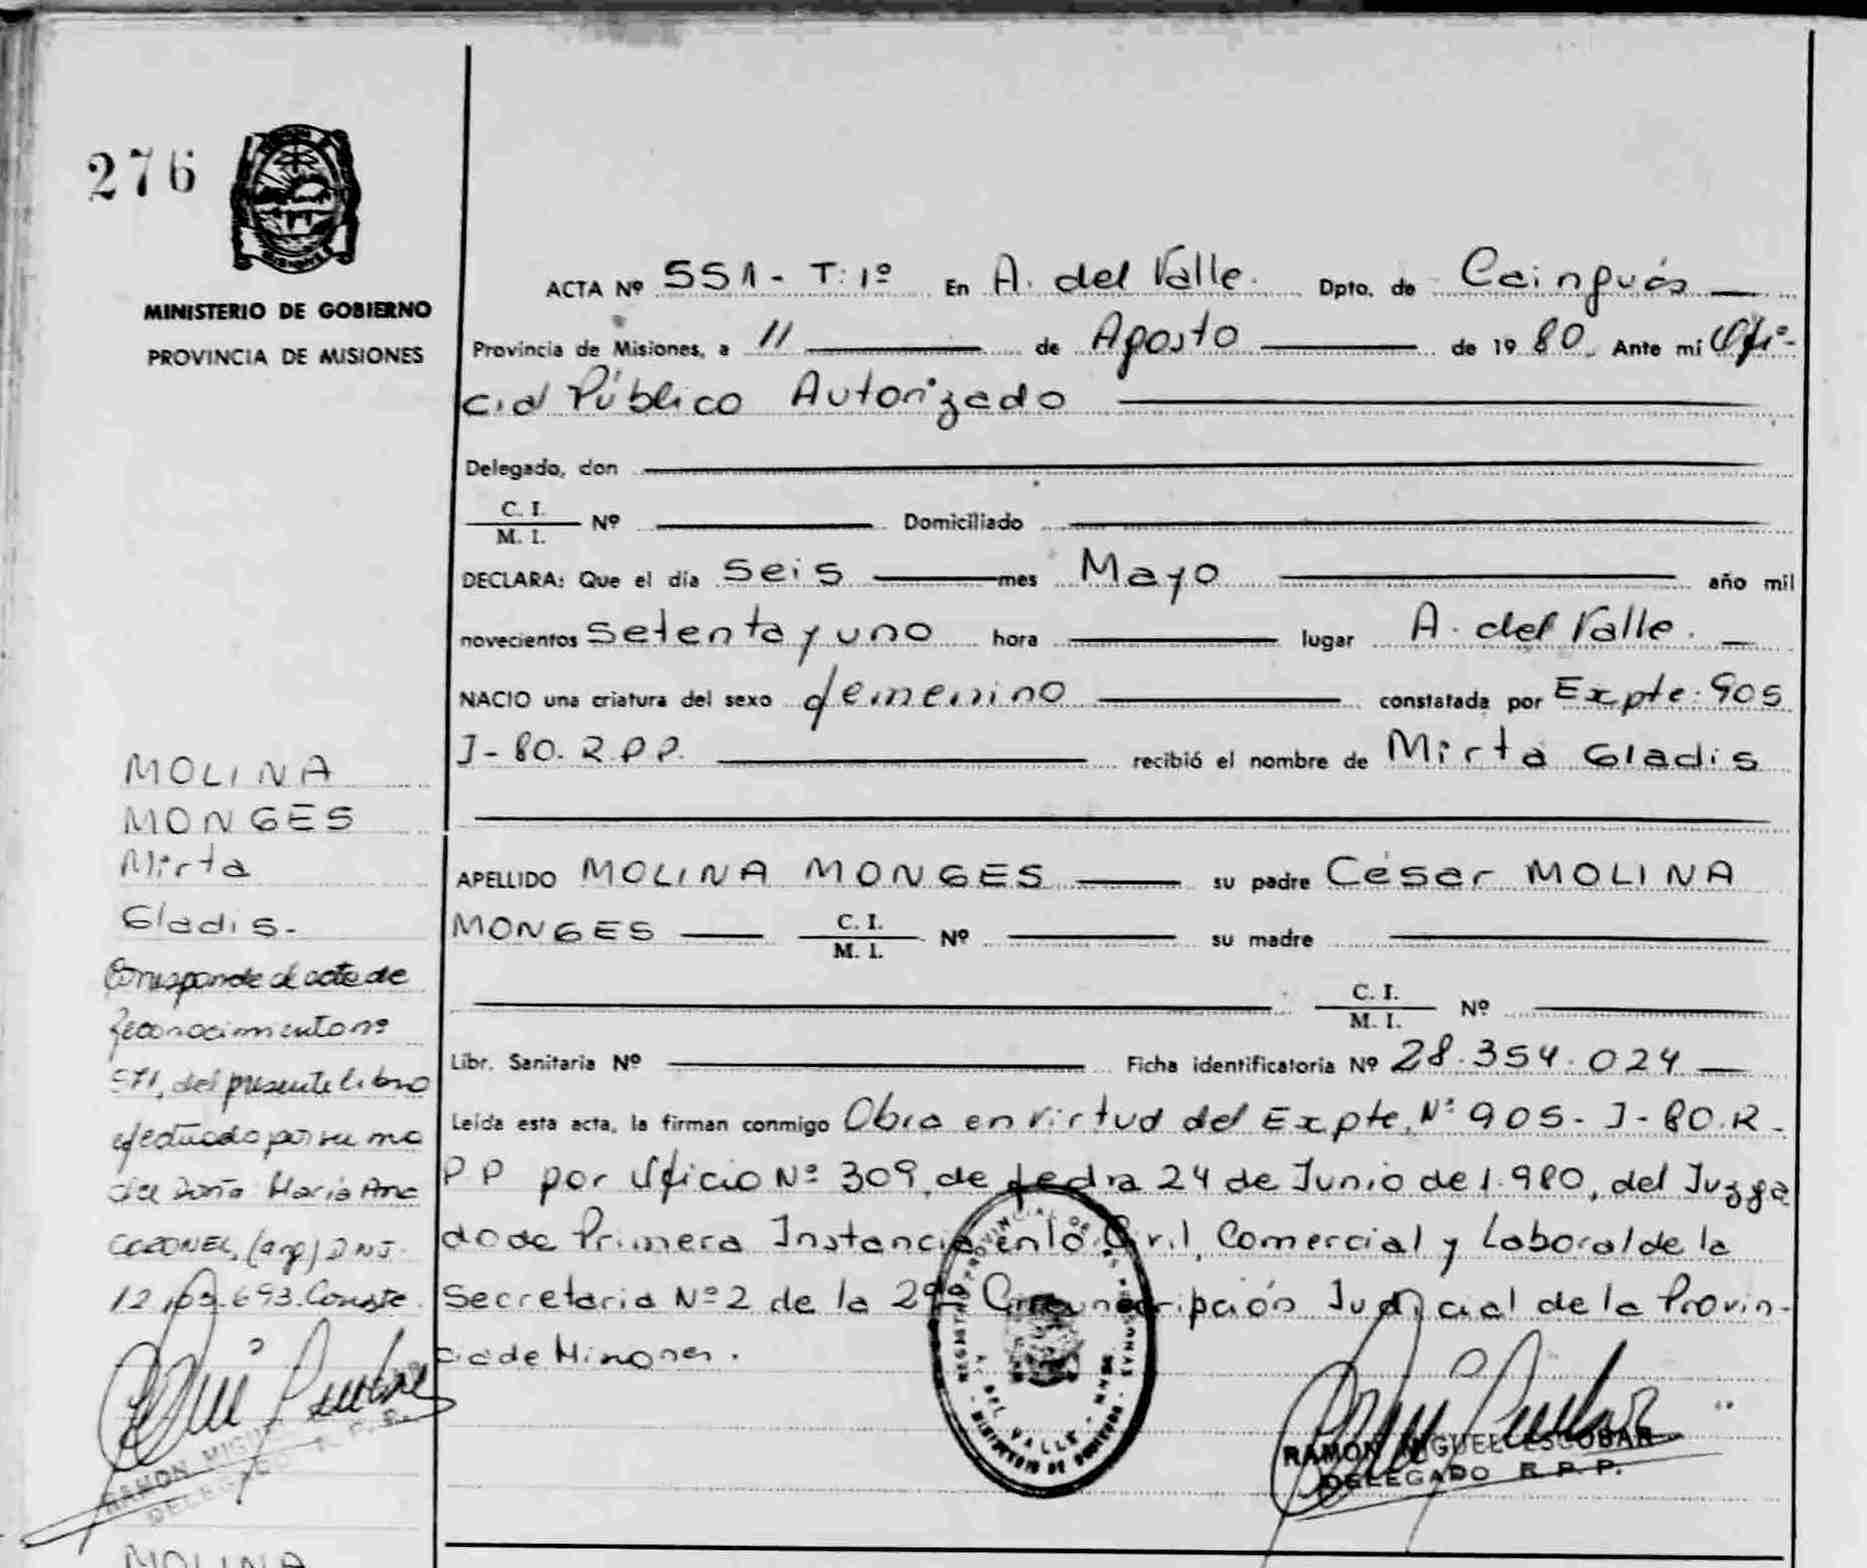 276
MINISTERIO DE GOBIERNO
PROVINCIA DE MISIONES
ACTA Nº 551 - T: 1º En A. del Valle. Dpto. de Cainguás
Provincia de Misiones, a 11 de Agosto de 1980. Ante mi Ofi-
cial Público Autorizado
Delegado, don
C. I.
M. I. Nº Domiciliado
DECLARA: Que el día Seis mes Mayo año mil
novecientos Setenta y uno hora lugar A. del Valle.
NACIO una criatura del sexo femenino constatada por Expte: 905
J-80. R.P.P. recibió el nombre de Mirta Gladis
APELLIDO MOLINA MONGES su padre César MOLINA
MONGES C. I.
M. I. Nº su madre
C. I.
M. I. Nº
Libr. Sanitaria Nº Ficha identificatoria Nº 28.354.024
Leída esta acta, la firman conmigo Obra en virtud del Expte. Nº 905- J-80.R-
P P por Oficio Nº 309, de fecha 24 de Junio de 1.980, del Juzga
do de Primera Instancia en lo Civil, Comercial y Laboral de la
Secretaria Nº 2 de la 2da Circunscripción Judicial de la Provin-
cia de Misiones.
MOLINA
MONGES
Mirta
Gladis.-
Corresponde al acta de
Reconocimiento nº
571, del presente libro
efectuado por su ma
dre Doña María Ana
CORONEL, (arg) DNI.
693. Conste.
RAMON MIGUEL
DELEGADO R. P. P.
REGISTRO PROVINCIAL DE LAS PERSONAS
A. DEL VALLE - MNES.
MINISTERIO DE GOBIERNO
RAMON MIGUEL ESCOBAR
DELEGADO R. P. P.
MOLINA